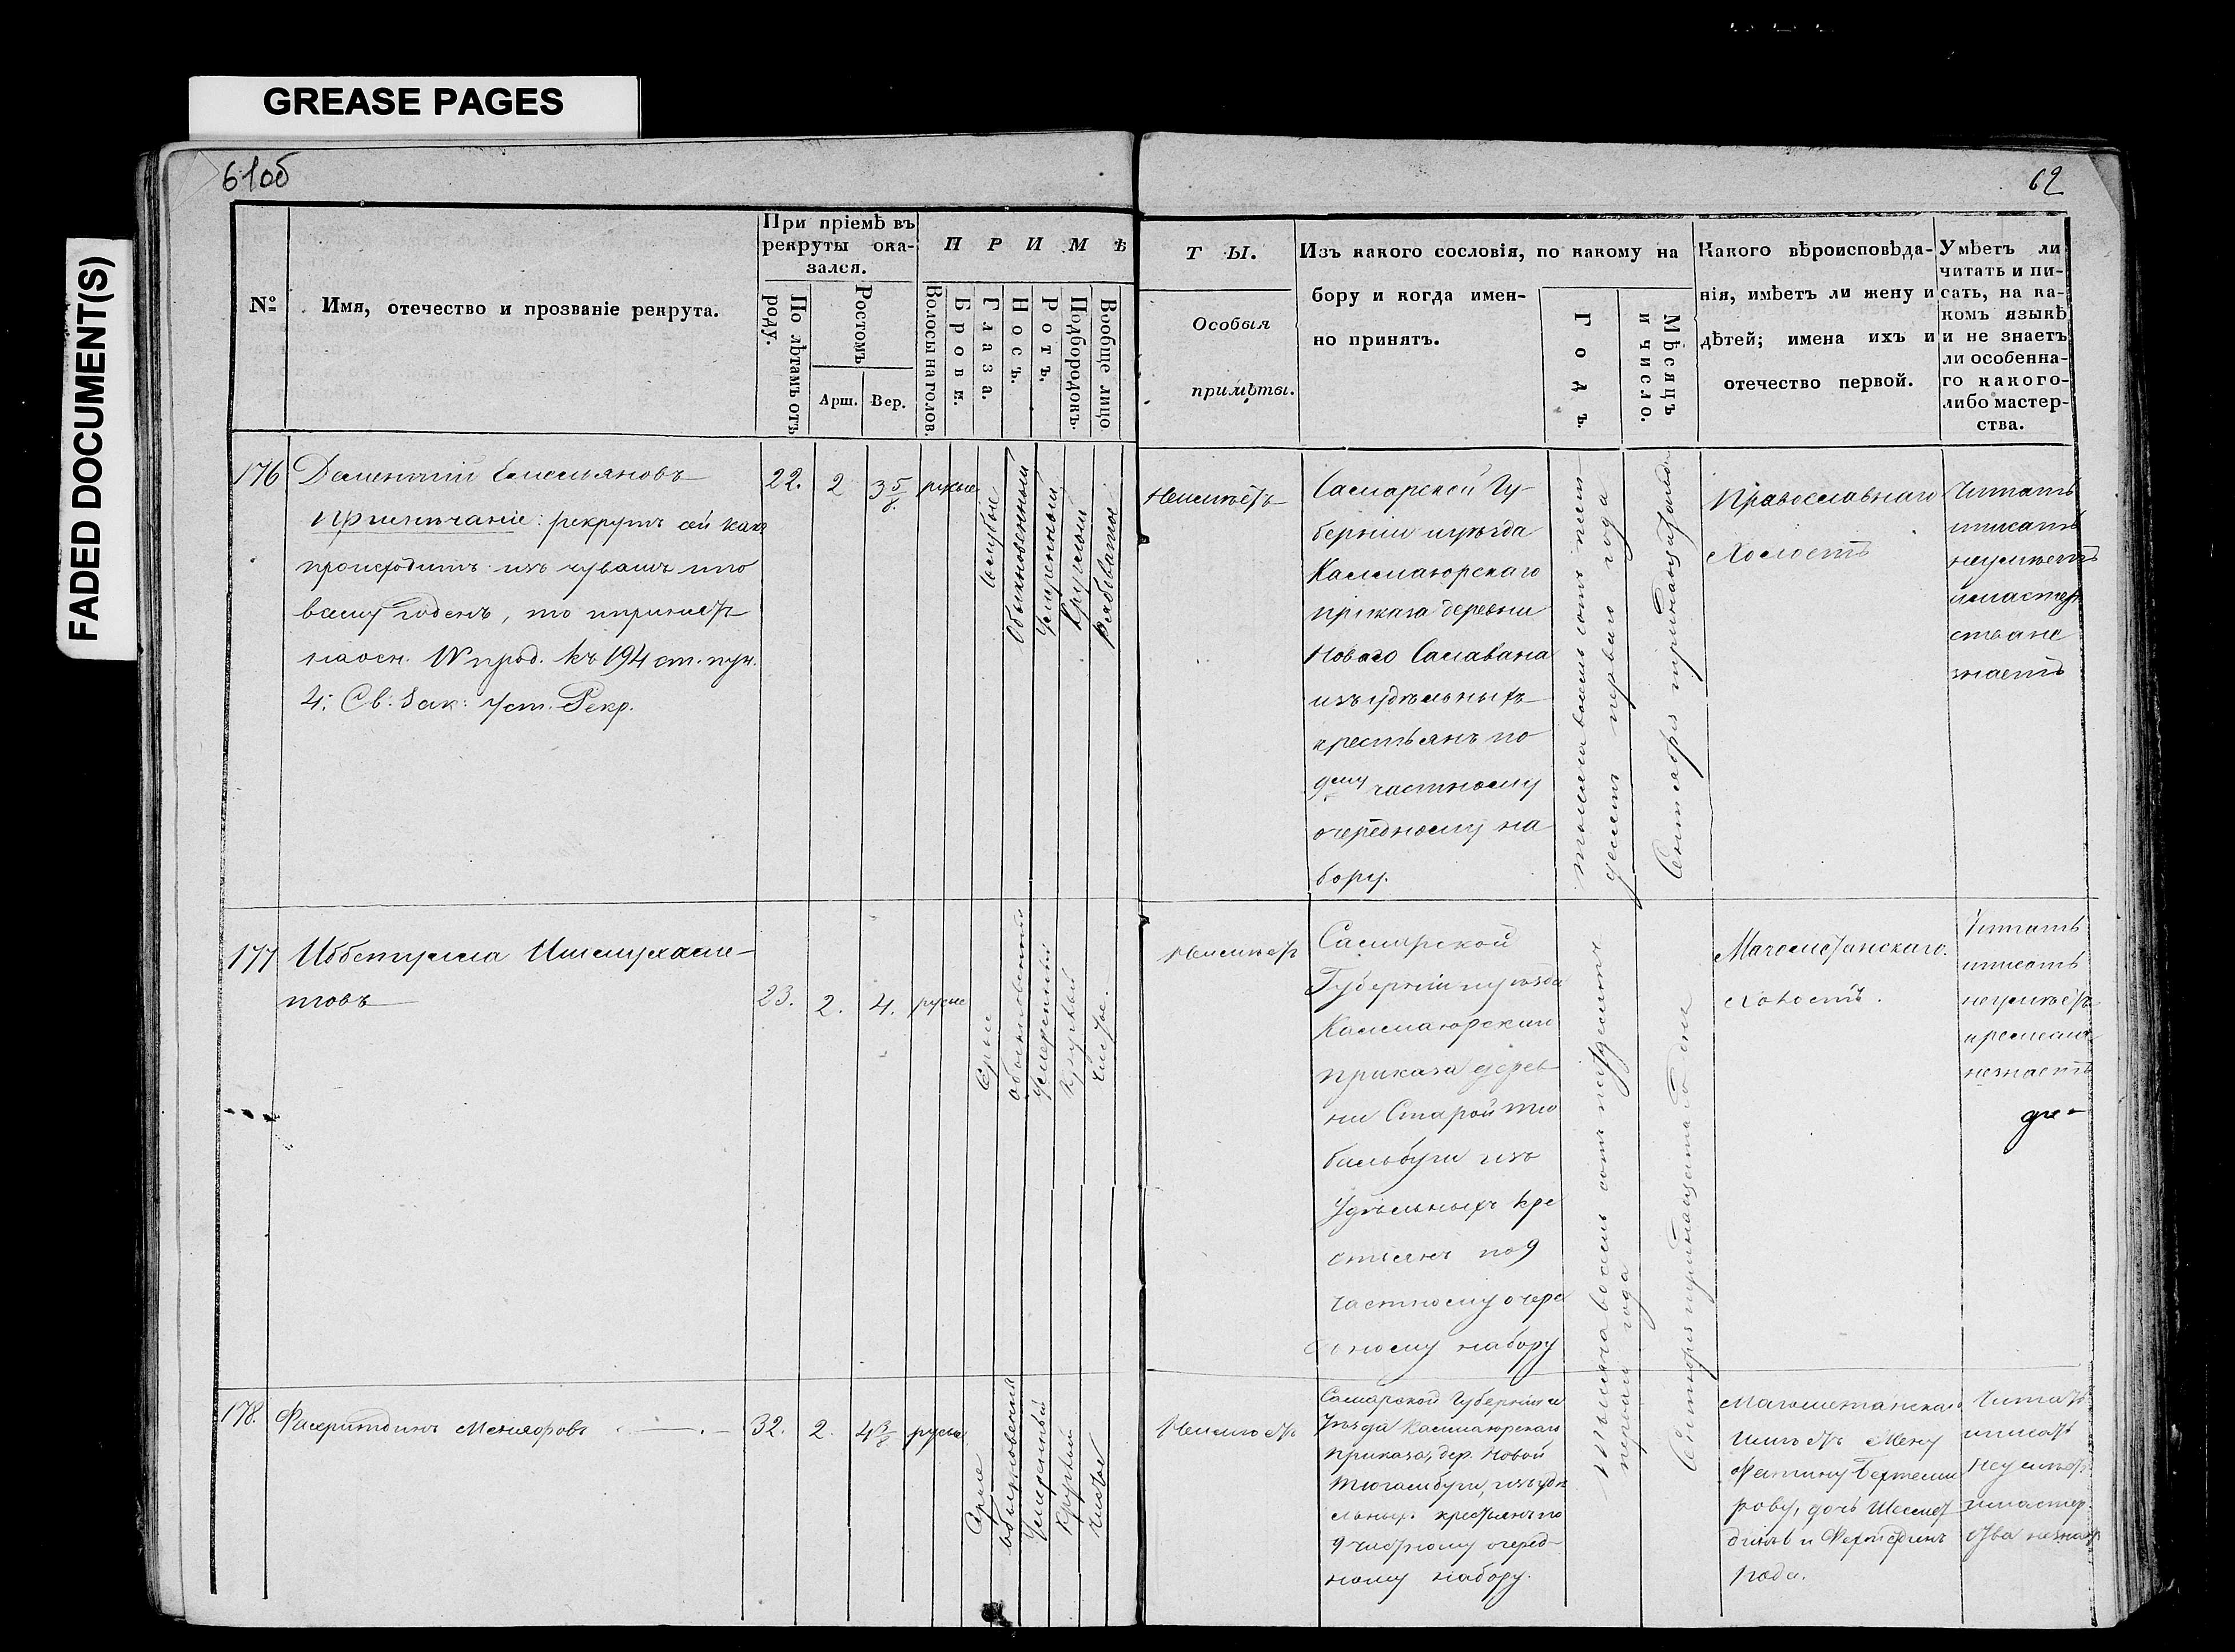 GREASE PAGES
FADED DOCUMENT(S)
61об
62
№
Имя, отечество и прозваніе рекрута.
При пріемѣ въ
рекруты ока-
зался.
По лѣтамъ отъ
роду.
Ростомъ
Арш.
Вер.
П Р И М Ѣ
Волосы на голов.
Брови.
Глаза.
Носъ.
Ротъ.
Подбородокъ.
Вообще лицо
Т Ы.
Особыя
примѣты.
Изъ какого сословія, по какому на
бору и когда имен-
но принятъ.
Годъ
Мѣсяцъ
и число.
Какого вѣроисповѣда-
нія, имѣетъ ли жену и
дѣтей; имена ихъ и
отечество первой.
Умѣетъ ли
читать и пи-
сать, на ка-
комъ языкѣ
и не знаетъ
ли особенна-
го какого-
либо мастер-
ства.
176
Емельяновъ
Примѣчаніе: рекрутъ сей какъ
происходитъ изъ чувашъ
годенъ, то
на осн. IV прод. къ 194 ст. пун.
4; Св: Зак: Уст. Рекр.
22.
2
3 5/8.
русые
голубые
Обыкновенный
Умеренный
Круглый
Рябоватое
Неимѣетъ
Самарской Гу-
берніи иуѣзда
Каммаюрскаго
приказа деревни
Новаго
изъ удѣльныхъ
крестьянъ по
9ему частному
очередному на
бору.
тысяча восемь сотъ пять
десятъ перваго года
Сентября тринадцатаго дня
Православнаго
Холостъ
Читать
иписать
неумѣетъ
имастер
ства не
знаетъ
177
Ишмухаме-
товъ
23.
2.
4.
русые
Серые
Обыкновенный
Умеренный
Круглый
Чистое.
Неимѣетъ
Самарской
Губерніи иуѣзда
Каммаюрскаго
приказа дерев
ни Старой Тю
изъ
Удѣльныхъ кре
стьянъ по 9
частному очере
дному набору
тысяча восемь сотъ пятьдесятъ
перваго года
Сентября тринадцатаго дня
Магометанскаго.
Холостъ.
Читать
иписать
неумѣетъ
иремесла
незнаетъ
178.
32.
2.
4 3/8
русые
Серые
обыкновенный
Умеренный
Круглый
чистое
Неимѣетъ
Самарской Губерніи и
Уѣзда Каммаюрскаго
приказа, дер. Новой
изъ удѣ
льныхъ крестьянъ по
9 частному очеред-
ному набору.
Магометанскаго
имѣетъ Жену
дочь
и
Читать
иписать
Неумѣетъ
имастер-
ства незнаетъ